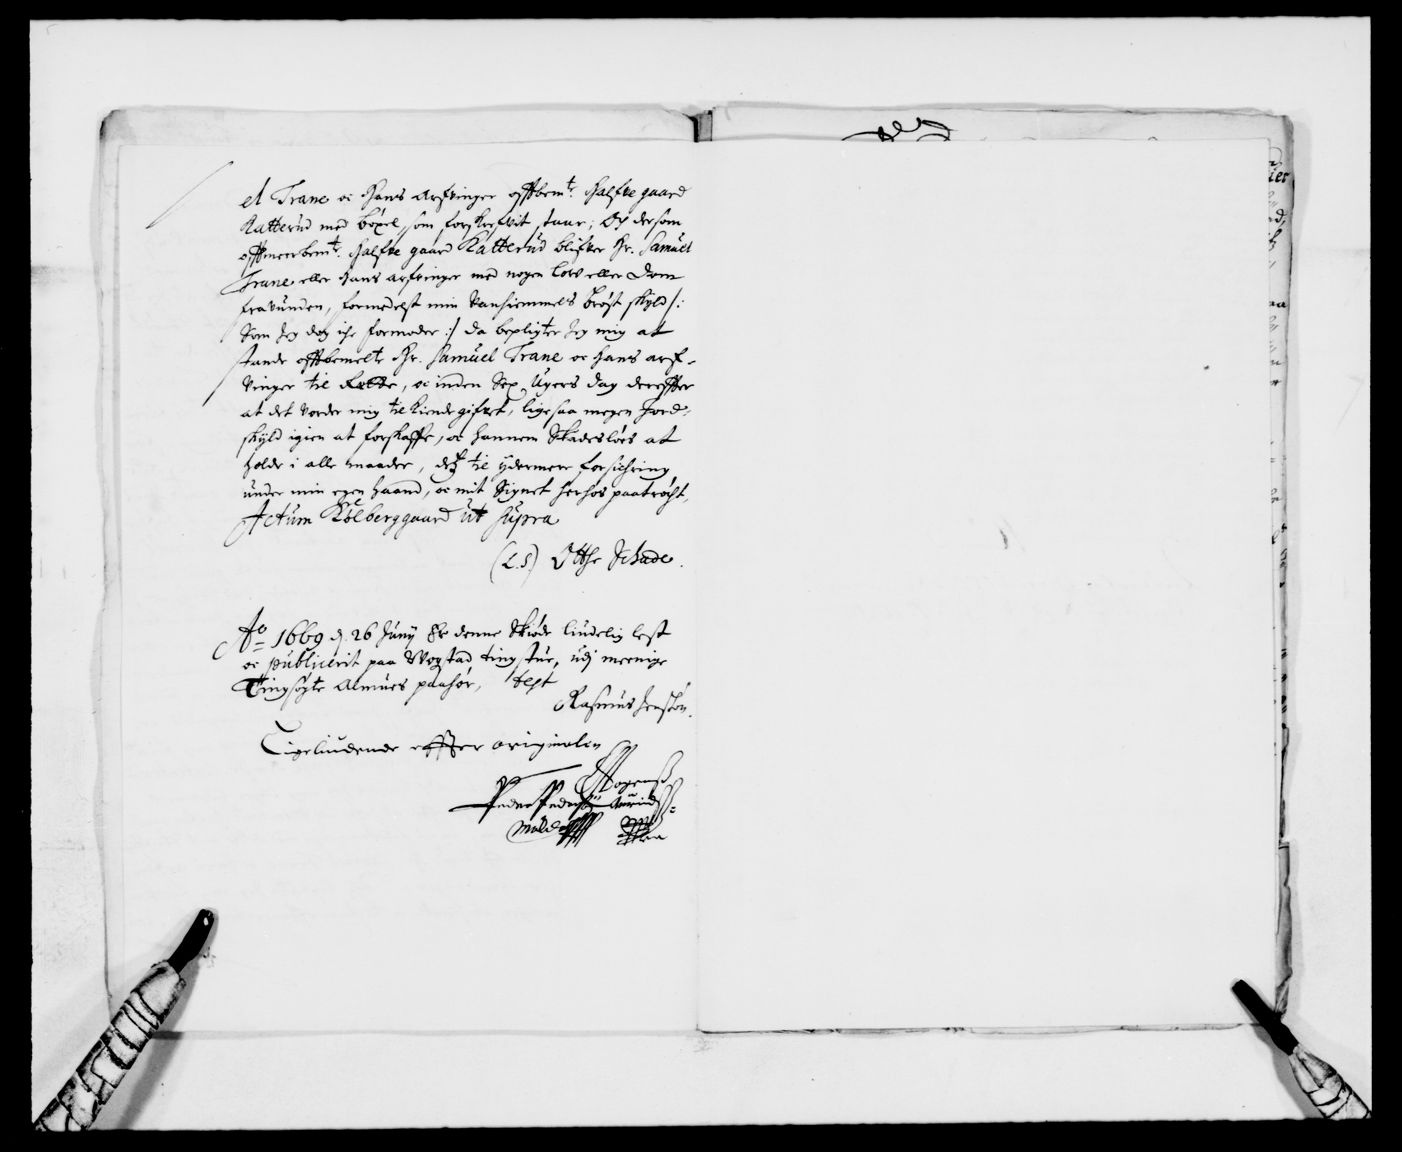 el Trane oc Hans Arfvinger offbem:te halfve gaard
Katterud med böxel, som forskrefvit staar; Og dersom
offmeerbem:te halfve gaard Katterud blifver Hr. Samuel
Trane eller hans arfvinger med nogen Low eller Dom
fravunden, formedelst min Vanhiemmels Bröst skyld /:
Som Jeg dog iche formoder :/ da bepligter Jeg mig at
stande offbemelte Hr. Samuel Trane oc hans arf-
vinger til Rette, oc inden Sex Ugers dag derefter
at det vorder mig tilkiende gifvet, lige saa megen Jord-
skyld igien at forskaffe, oc hannem Skadeslöes at
holde i alle maader, des til ydermere forsichring
under min egen haand, oc mit Signet herhos paatröcht,
Actum Kölberggaard ut supra
(L.S.) Otthe Schade.
Ao 1669 d. 26 Juny Er denne Skiöde liudelig lest
oc publicerit paa Wogstad tingstue, udj meenige
Tingsögte Almues paahör, test
Rasmus Jensön.
Ligeliudende effter originalen
Mogens
Peder Pedersön Lauridss:
Müller